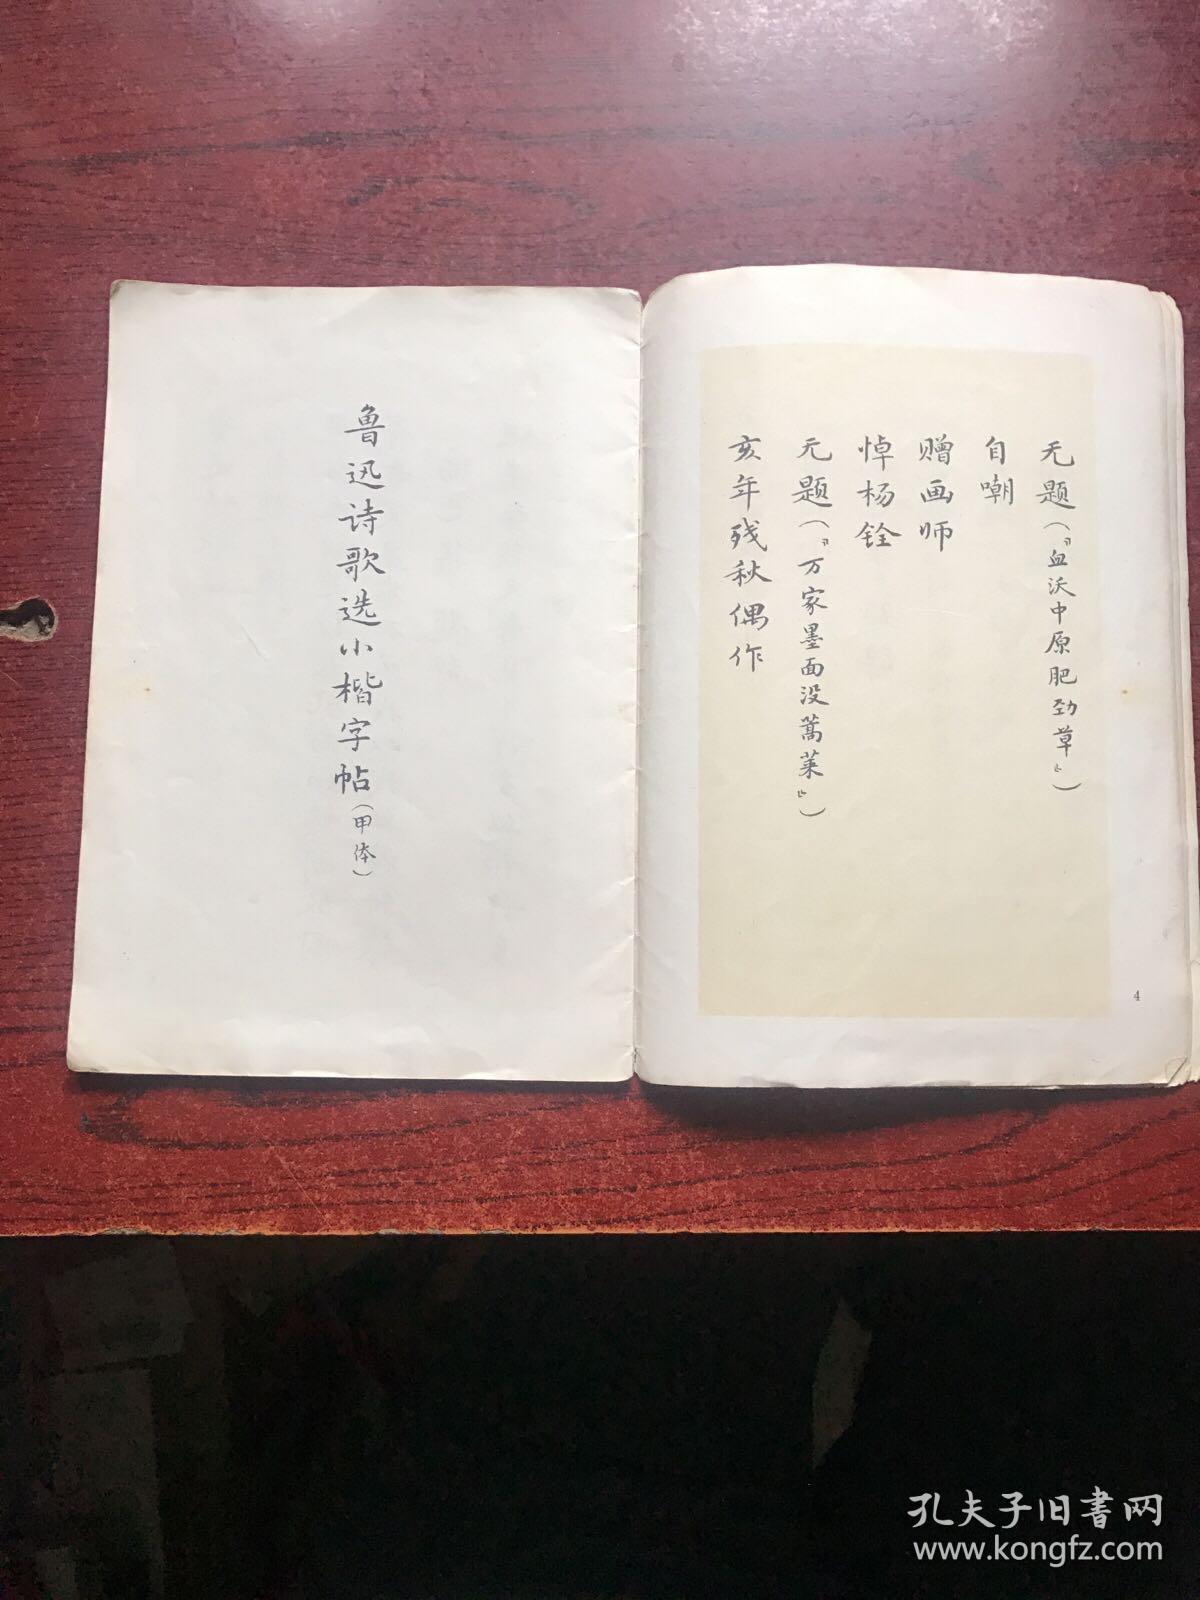 鲁迅诗歌选小楷字帖(甲体)
无题(“血沃中原肥劲草”)
自嘲
赠画师
悼杨铨
无题(“万家墨面没蒿莱”)
亥年残秋偶作
4
孔夫子旧書网
www.kongfz.com